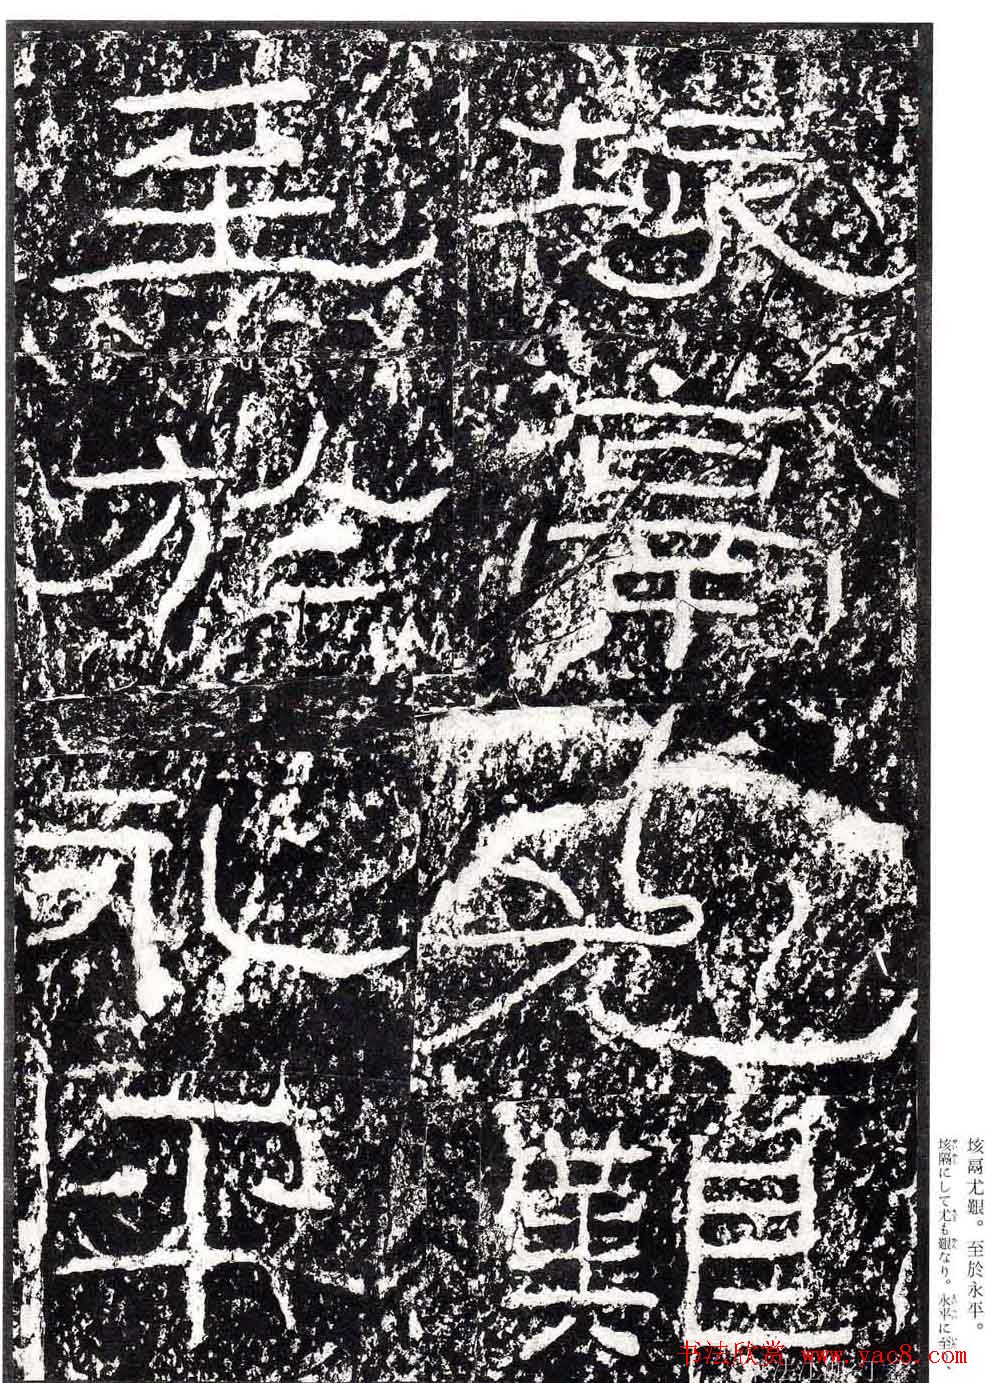 垓鬲尤艱
至於永平
垓鬲尤艱。至於永平。
垓隔にして尤も艱なり。永平に至
书法欣赏 www.yac8.com